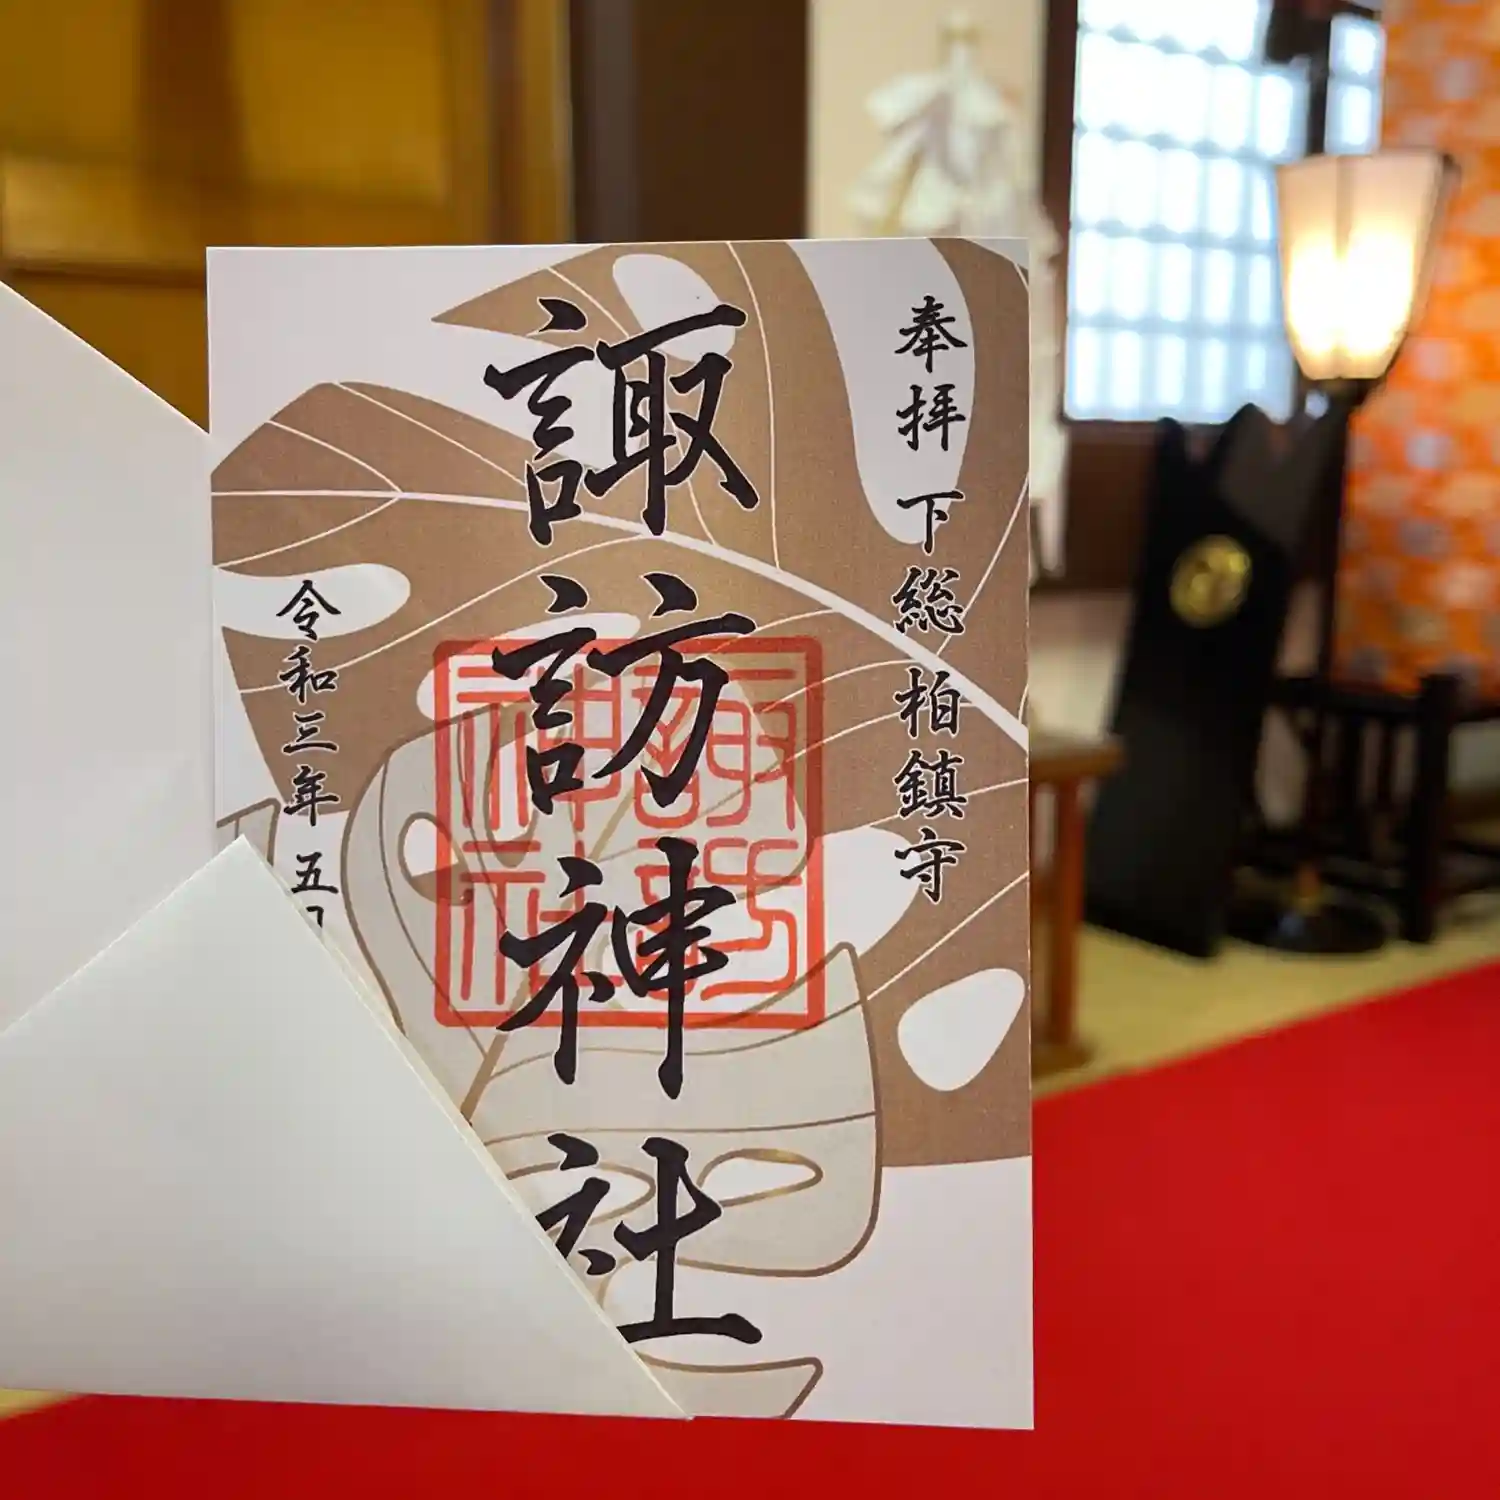 奉拝 下総柏鎮守
諏訪神社
諏訪
神社
令和三年 五